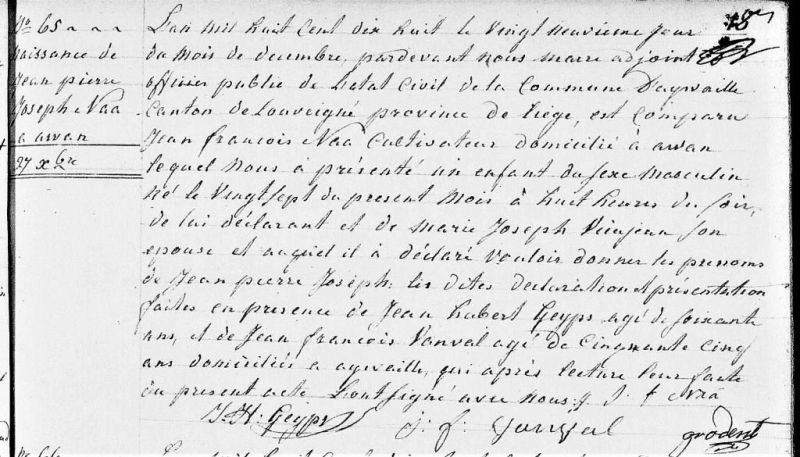 No 65
naissance de
Jean pierre
Joseph Naa
a awan
27 xbre
L'an mil huit cent dix huit le vingt neuvieme jour
du mois de decembre, pardevant nous maire adjoint
officier public de l'etat Civil de la Commune D'aywaille
Canton de Louveigné province de Liége, est comparu
Jean francois Naa Cultivateur domicilié à awan
lequel nous à présenté un enfant du sexe masculin
né le vingt sept du présent mois à huit heures du soir,
de lui déclarant et de marie Joseph son
epouse et auquel il à déclaré vouloir donner les prenoms
de Jean pierre Joseph: les dites declaration et presentation
faites en presence de Jean hubert Geyps agé de soixante
ans, et de Jean francois Vanval agé de Cinquante Cinq
ans domiciliés a aywaille, qui après lecture leur faite
du present acte l'ont signé avec nous: J. f Naa
J. H. Geyps
J. f. Vanval
grodent